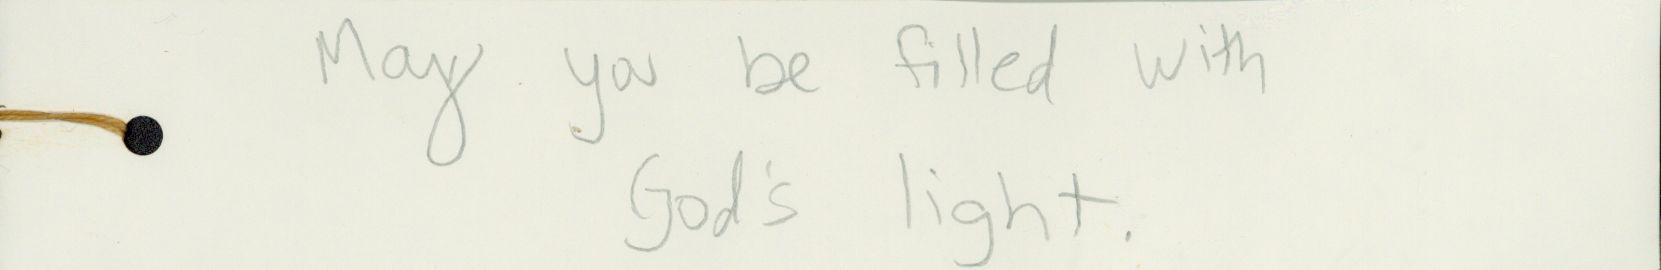 May you be filled with
God's light.